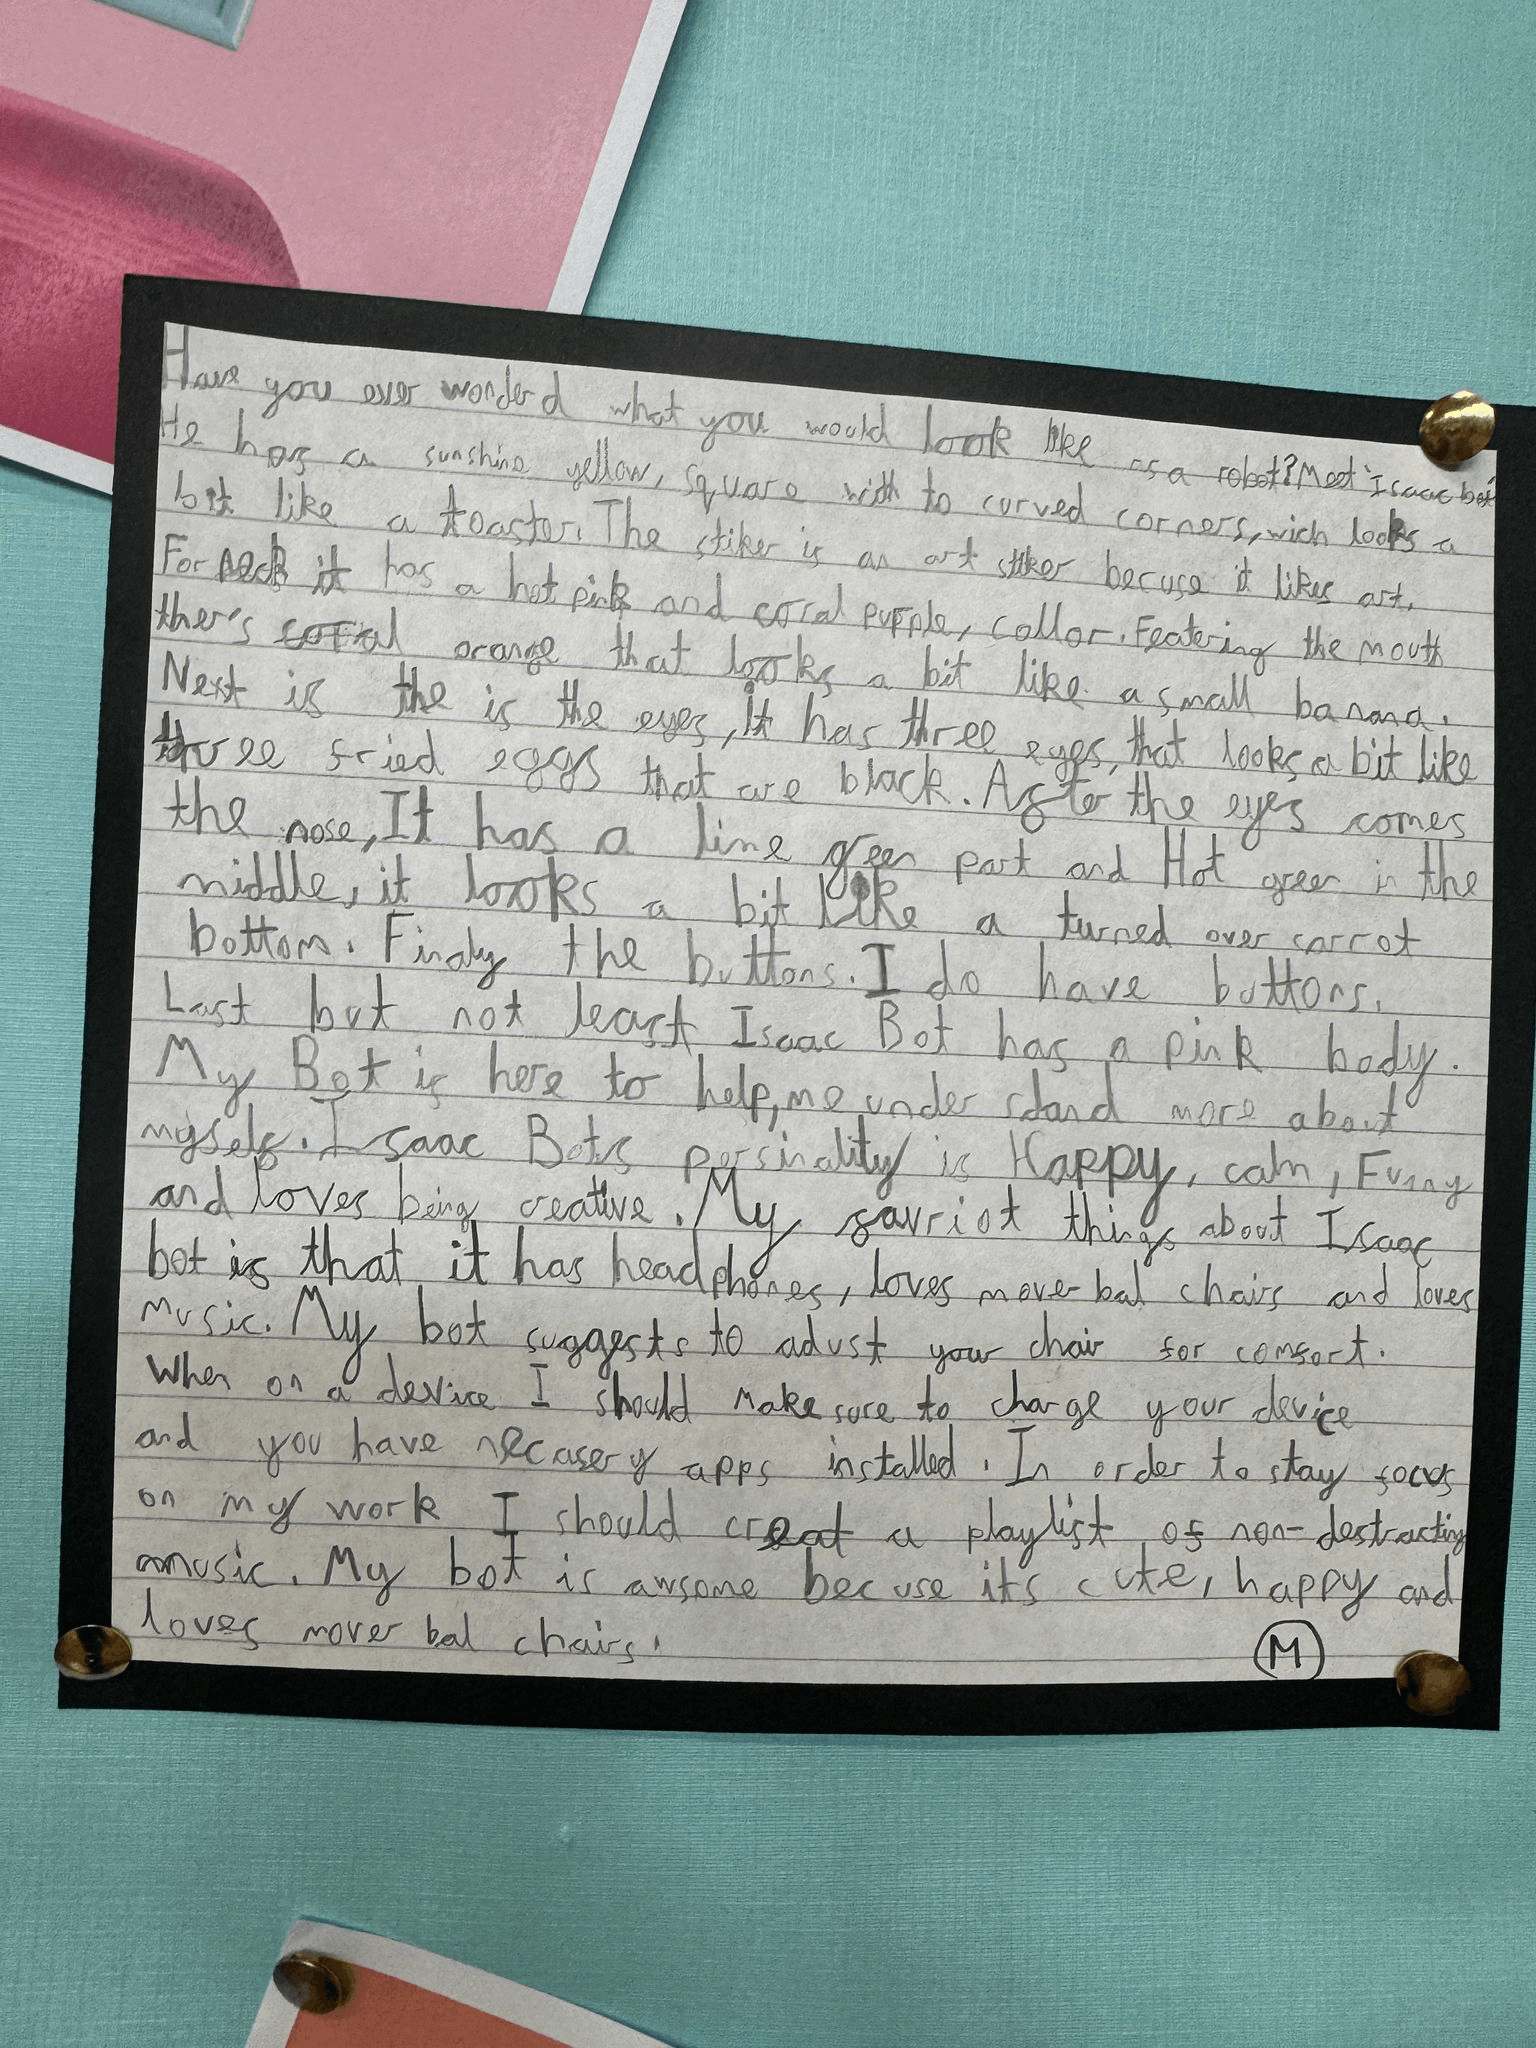 Have you ever wonderd what you would look like as a robot? Meet "Isaac bot"
He has a sunshine yellow, square with to curved corners, wich looks a
bit like a toaster. The stiker is an art stiker becuse it likes art.
For neck it has a hot pink and coral pupple, collor. Featering the mouth
ther's coral orange that looks a bit like a small banana.
Next is the is the eyes, It has three eyes, that looks a bit like
three fried eggs that are black. After the eyes comes
the nose, It has a lime green part and Hot green in the
middle, it looks a bit like a turned over carrot
bottom. Finaly the buttons. I do have buttons.
Last but not least Isaac Bot has a pink body.
My Bot is here to help, me under stand more about
myself. Isaac Bots persinality is Happy, calm, Funny
and loves being creative. My favriot things about Isaac
bot is that it has headphones, loves mover bal chairs and loves
music. My bot suggests to adust your chair for comfort.
When on a device I should make sure to charge your device
and you have necasery apps installed. In order to stay focus
on my work I should creat a playlist of non-destracting
music. My bot is awsome becuse its cute, happy and
loves mover bal chairs.
M